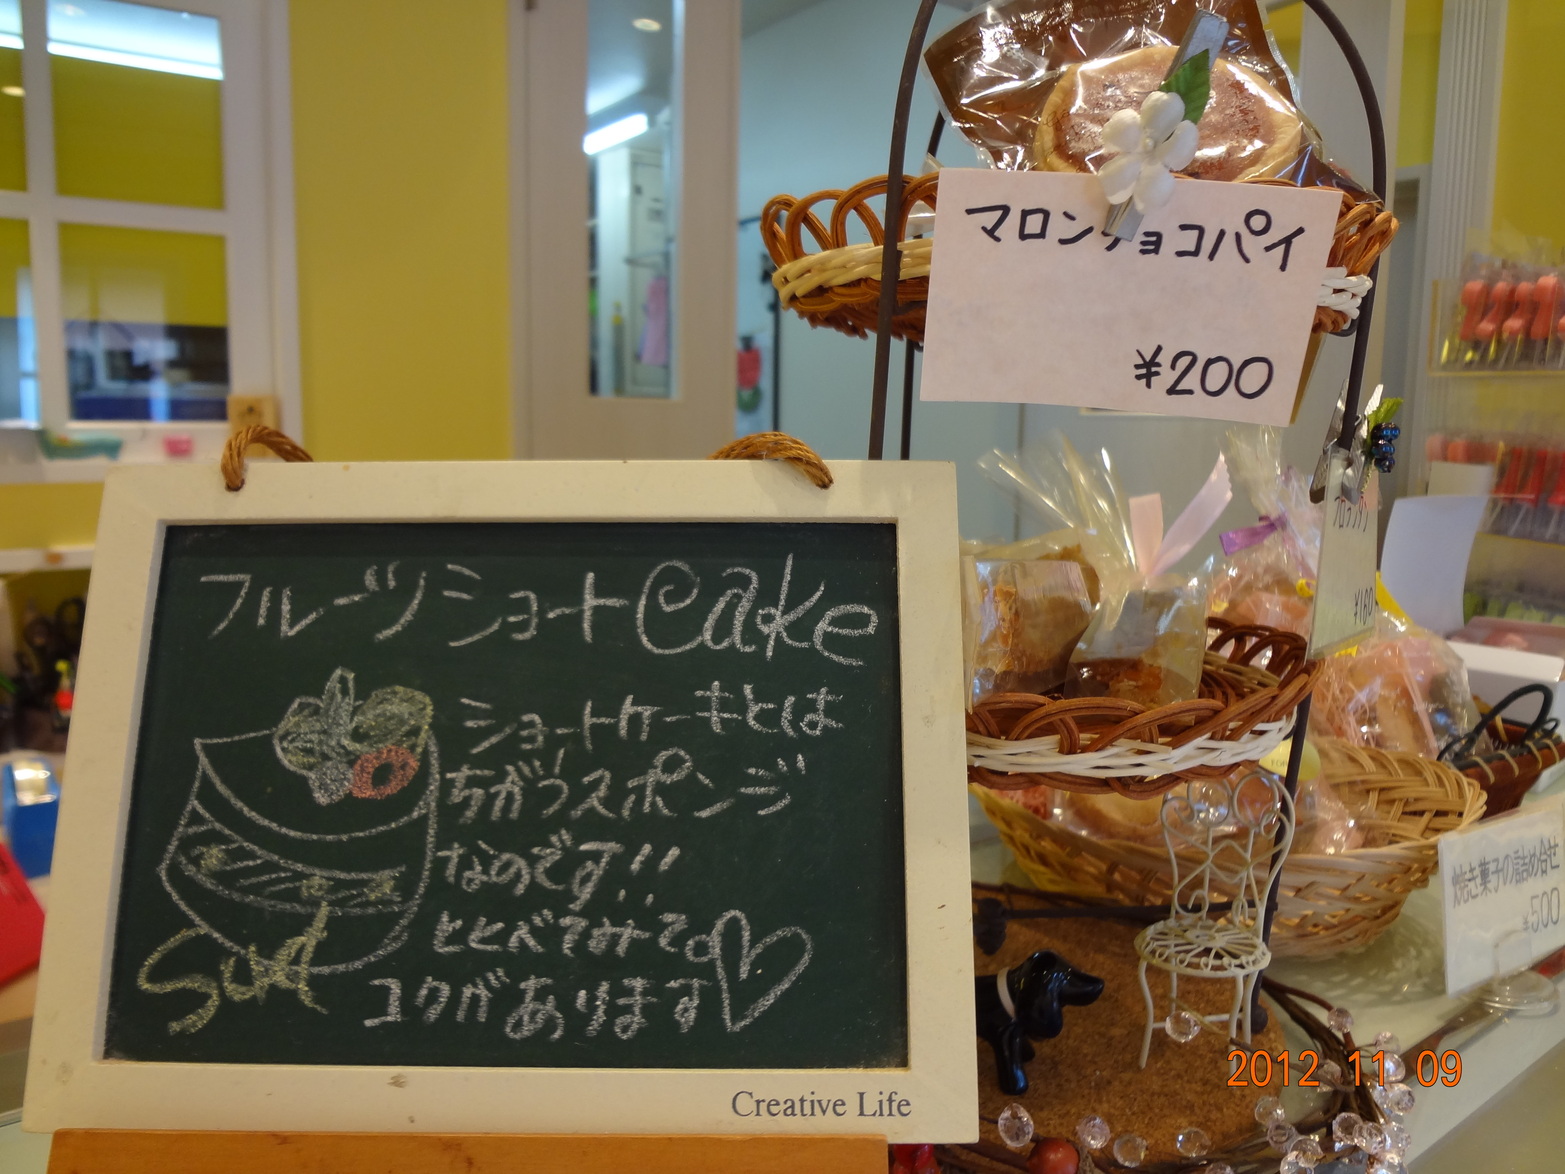 マロンチョコパイ
¥200
フルーツショートCake
ショートケーキとは
ちがうスポンジ
なのです!!
ととべてみて
コクがあります
Creative Life
¥180
焼き菓子の詰め合せ
¥500
2012 11 09